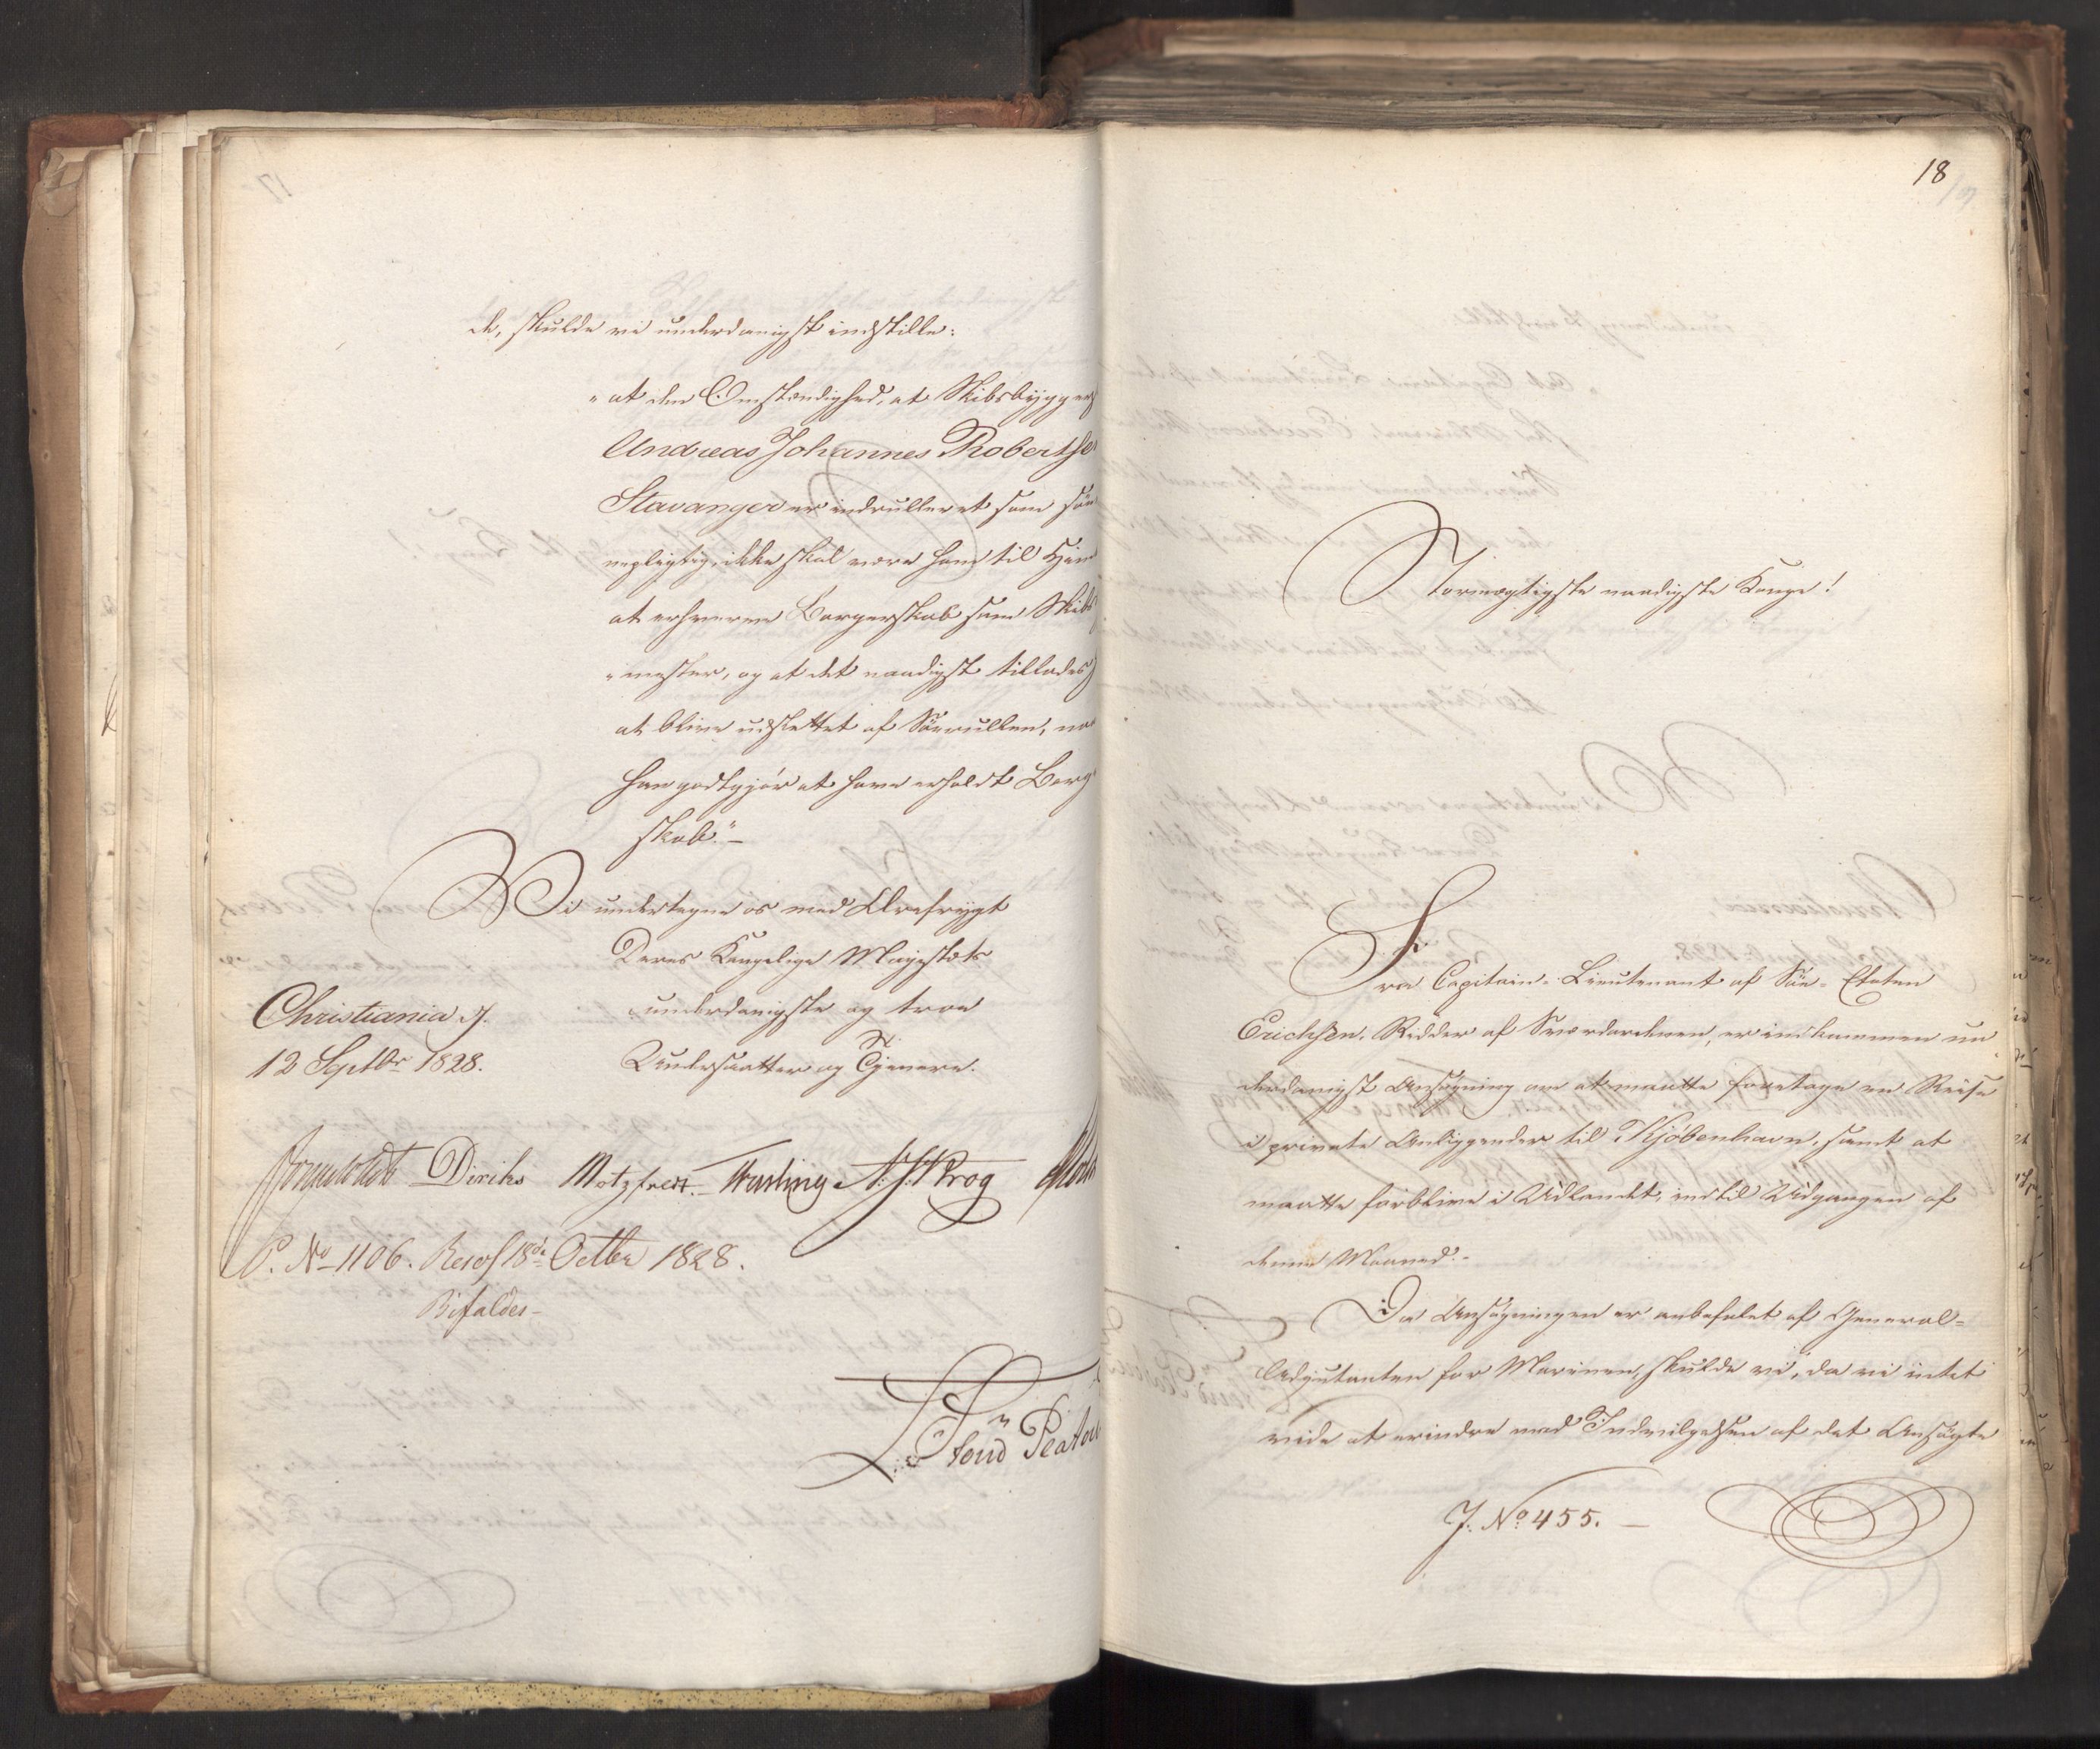 de, skulde vi underdanigst indstille:
"at den Omstændighed, at Skibsbygger
Andreas Johannes Roberthse
Stavanger er indrulleret som søe
nepligtig, ikke skal være ham til Hin
at erhverve Borgerskab som Skibs
"mester, og at det naadigst tillades
at blive udslettet af Søerullen, na
han godtgjør at have erholdt Borg
skab."—
Vi undertegne os med Ærefrygt
Deres Kongelige Majestæts
underdanigste og troe
Undersaatter og Tjenere.
Christiania d.
12 Septbr 1828.
Diriks Motzfeldt. N. J. Krog
P. No 1106. Resol 18de Octbr 1828.
Bifaldes—
18
Stormægtigste naadigste Konge!
Fra Capitain-Lieutenant af Søe-Etaten
Erichsen, Ridder af Sværdordenen, er indkommen un
derdanigst Ansøgning om at maatte foretage en Reise
i private Anliggender til Kjøbenhavn, samt at
maatte forblive i Udlandet, indtil Udgangen af
denne Maaned.-
Da Ansøgningen er anbefalet af General-
Adjutanten for Marinen, skulde vi, da vi intet
vide at erindre mod Indvilgelsen af det Ansøgte
J. No. 455.—